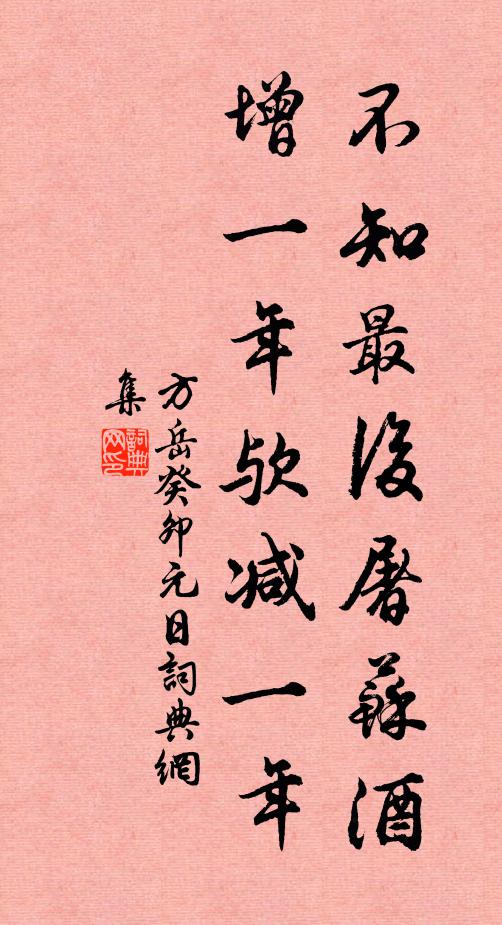 不知最後屠蘇酒
增一年欤减一年
方岳癸卯元日詞典網
集
詞典
网印